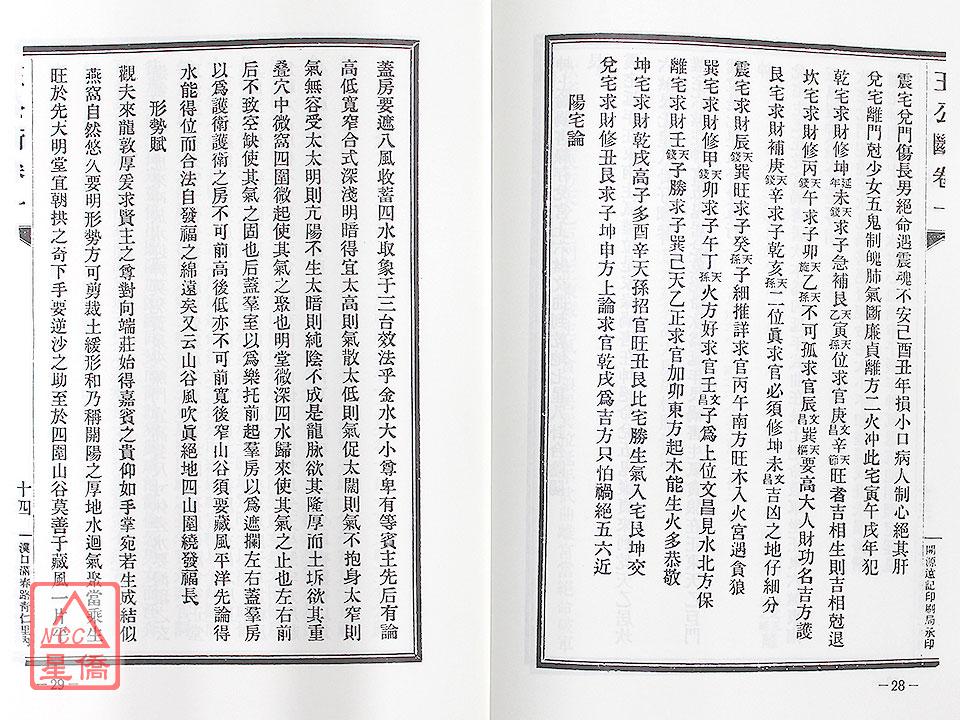 王公斷卷一
開源遠記印刷局承印
震宅兌門傷長男絕命遇震魂不安己酉丑年損小口病人制心絕其肝
兌宅離門尅少女五鬼制魄肺氣斷廉貞離方二火冲此宅寅午戌年犯
乾宅求財修坤延年未天錢求子急補艮天乙寅天孫位求官庚文昌辛天節旺者吉相生則吉相尅退
坎宅求財修丙天錢午求子卯天乙天孫不可孤求官辰文昌巽要高大人財功名吉方護
艮宅求財補庚天錢辛求子乾亥天孫二位眞求官必須修坤未文昌吉凶之地仔細分
震宅求財辰天錢巽旺求子癸天孫子細推詳求官丙午南方旺木入火宮遇貪狼
巽宅求財修甲天錢卯求子午丁天孫火方好求官壬文昌子爲上位文昌見水北方保
離宅求財壬天錢子勝求子巽己天乙正求官加卯東方起木能生火多恭敬
坤宅求財乾戌高子多酉辛天孫招官旺丑艮比宅勝生氣入宅艮坤交
兌宅求財修丑艮求子坤申方上論求官乾戌爲吉方只怕禍絕五六近
陽宅論
—28—
蓋房要遮八風收蓄四水取象于三台效法乎金水大小尊卑有等賓主先后有論
高低寬窄合式深淺明暗得宜太高則氣散太低則氣促太闊則氣不抱身太窄則
氣無容受太太明則亢陽不生太暗則純陰不成是龍脉欲其隆厚而土坼欲其重
疊穴中微窩四圍微起使其氣之聚也明堂微深四水歸來使其氣之止也左右前
后不致空缺使其氣之固也后蓋羣室以爲樂托前起羣房以爲遮攔左右蓋羣房
以爲護衛護衛之房不可前高後低亦不可前寬後窄山谷須要藏風平洋先論得
水能得位而合法自發福之綿遠矣又云山谷風吹眞絕地四山圍繞發福長
形勢賦
觀夫來龍敦厚爰求賢主之尊對向端莊始得嘉賓之貴仰如手掌宛若生成結似
燕窩自然悠久要明形勢方可剪裁土緩形和乃稱開陽之厚地水迴氣聚當乘生
旺於先大明堂宜朝拱之奇下手要逆沙之助至於四圍山谷莫善于藏風一片平
十四
漢口滿春路靑仁里
—29—
NCC
星僑